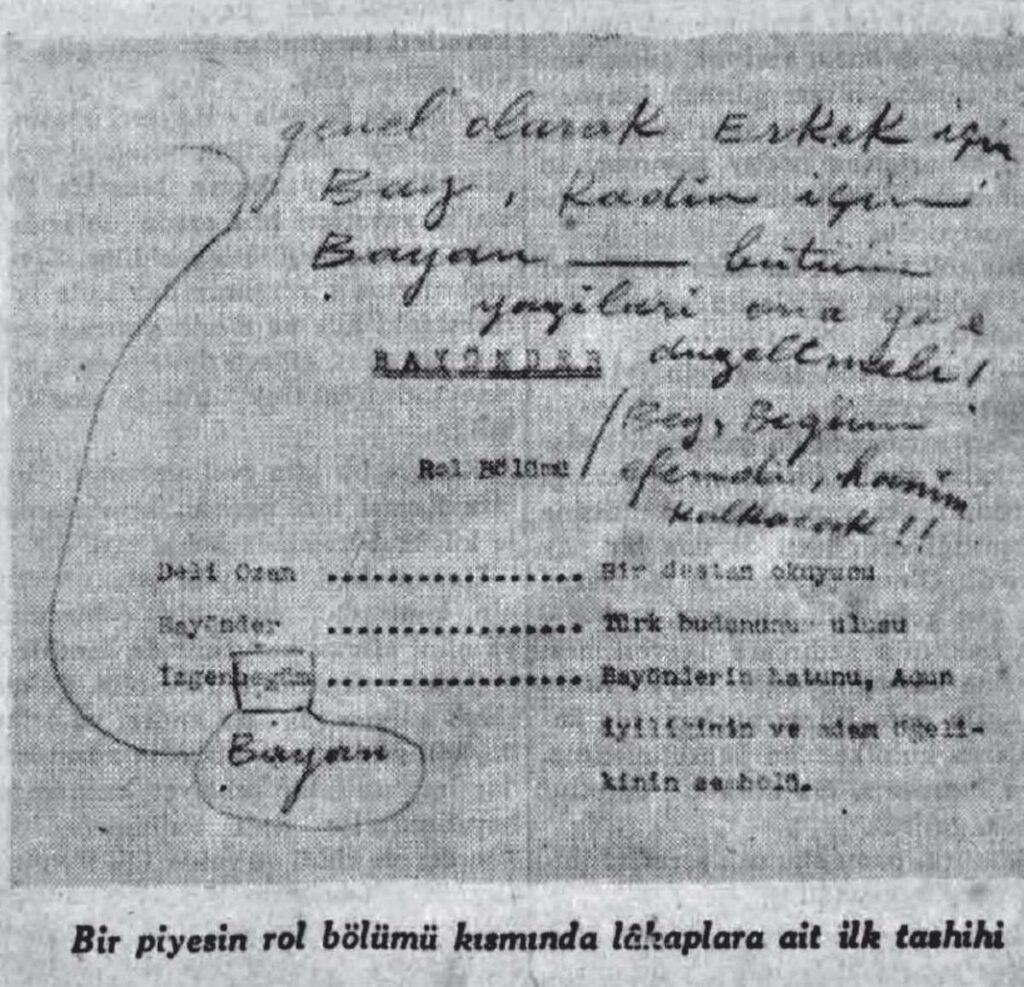 genel olarak Erkek için
Bay, Kadın için
Bayan — bütün
yazıları ona göre
düzeltmeli!
BAYÖNDER
Bey, Begüm
Rol Bölümü
efendi, hanım
kalkacak!!
Deli Ozan .................... Bir destan okuyucu
Bayönder .................... Türk budununun ulusu
İzgenbegüm .................... Bayönderin hatunu, Acun
iyiliğinin ve adam
Bayan
kinin sembolü.
Bir piyesin rol bölümü kısmında lâkaplara ait ilk tashihi